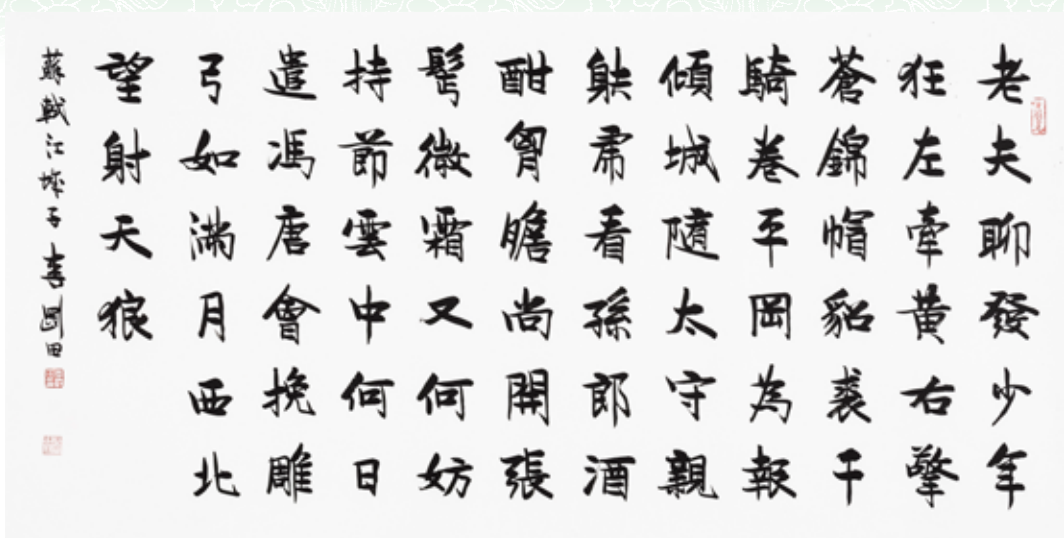 老夫聊發少年
狂左牽黄右擎
蒼錦帽貂裘千
騎卷平岡為報
傾城隨太守親
䠶虎看孫郎酒
酣胷膽尚開張
鬢微霜又何妨
持節雲中何日
遣馮唐會挽雕
弓如滿月西北
望射天狼
蘇軾江城子 李剛田